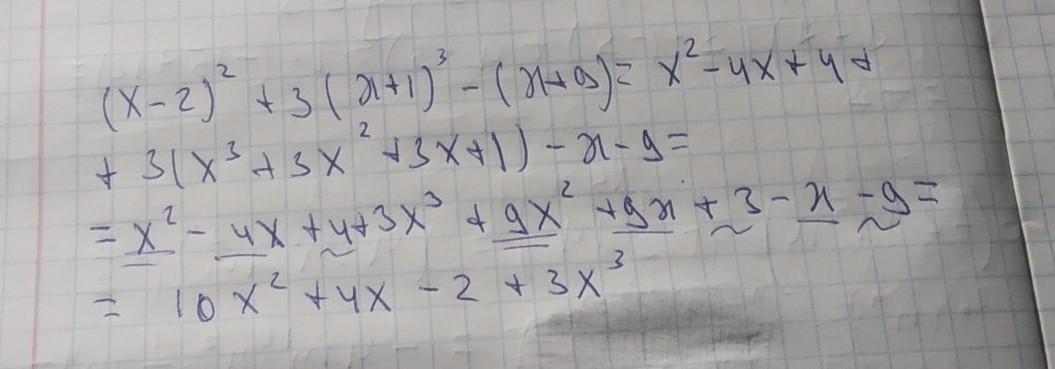 (x-2)² + 3(x+1)³ - (x+9) = x² - 4x + 4 +
+ 3(x³ + 3x² + 3x + 1) - x - 9 =
= x² - 4x + 4 + 3x³ + 9x² + 9x + 3 - x - 9 =
= 10x² + 4x - 2 + 3x³